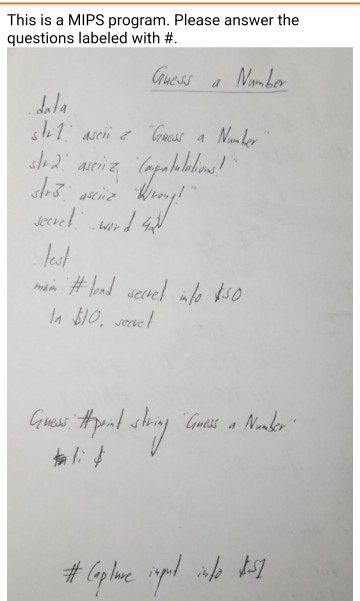 This is a MIPS program. Please answer the
questions labeled with #.
Guess a Number
.data
str1: .asciiz "Guess a Number"
str2: .asciiz "Congratulations!"
str3: .asciiz "Wrong!"
secret: .word 42
.text
main: #load secret into $S0
la $t0, secret
Guess: #print string "Guess a Number"
li $
# Capture input into $S1